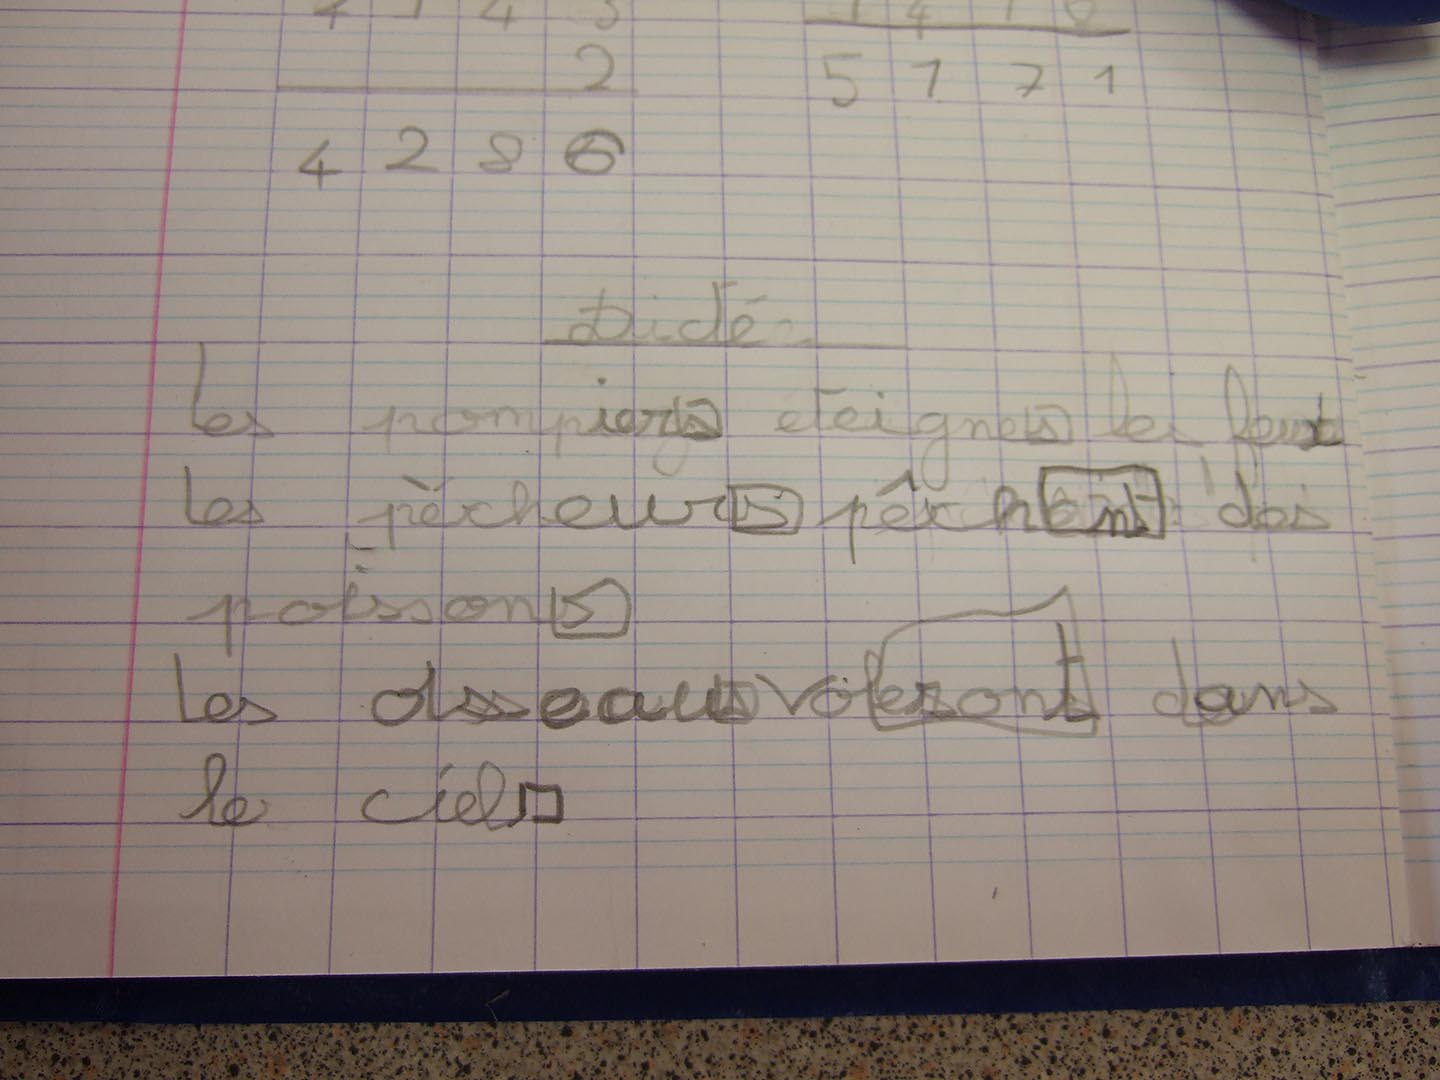 2 1 4 3
2
4 2 8 6
1 4 1 0
5 1 7 1
Didé
Les pompiers éteignes les feux
Les pêcheurs pêchent des
poissons
Les oiseaus voleront dans
le ciel